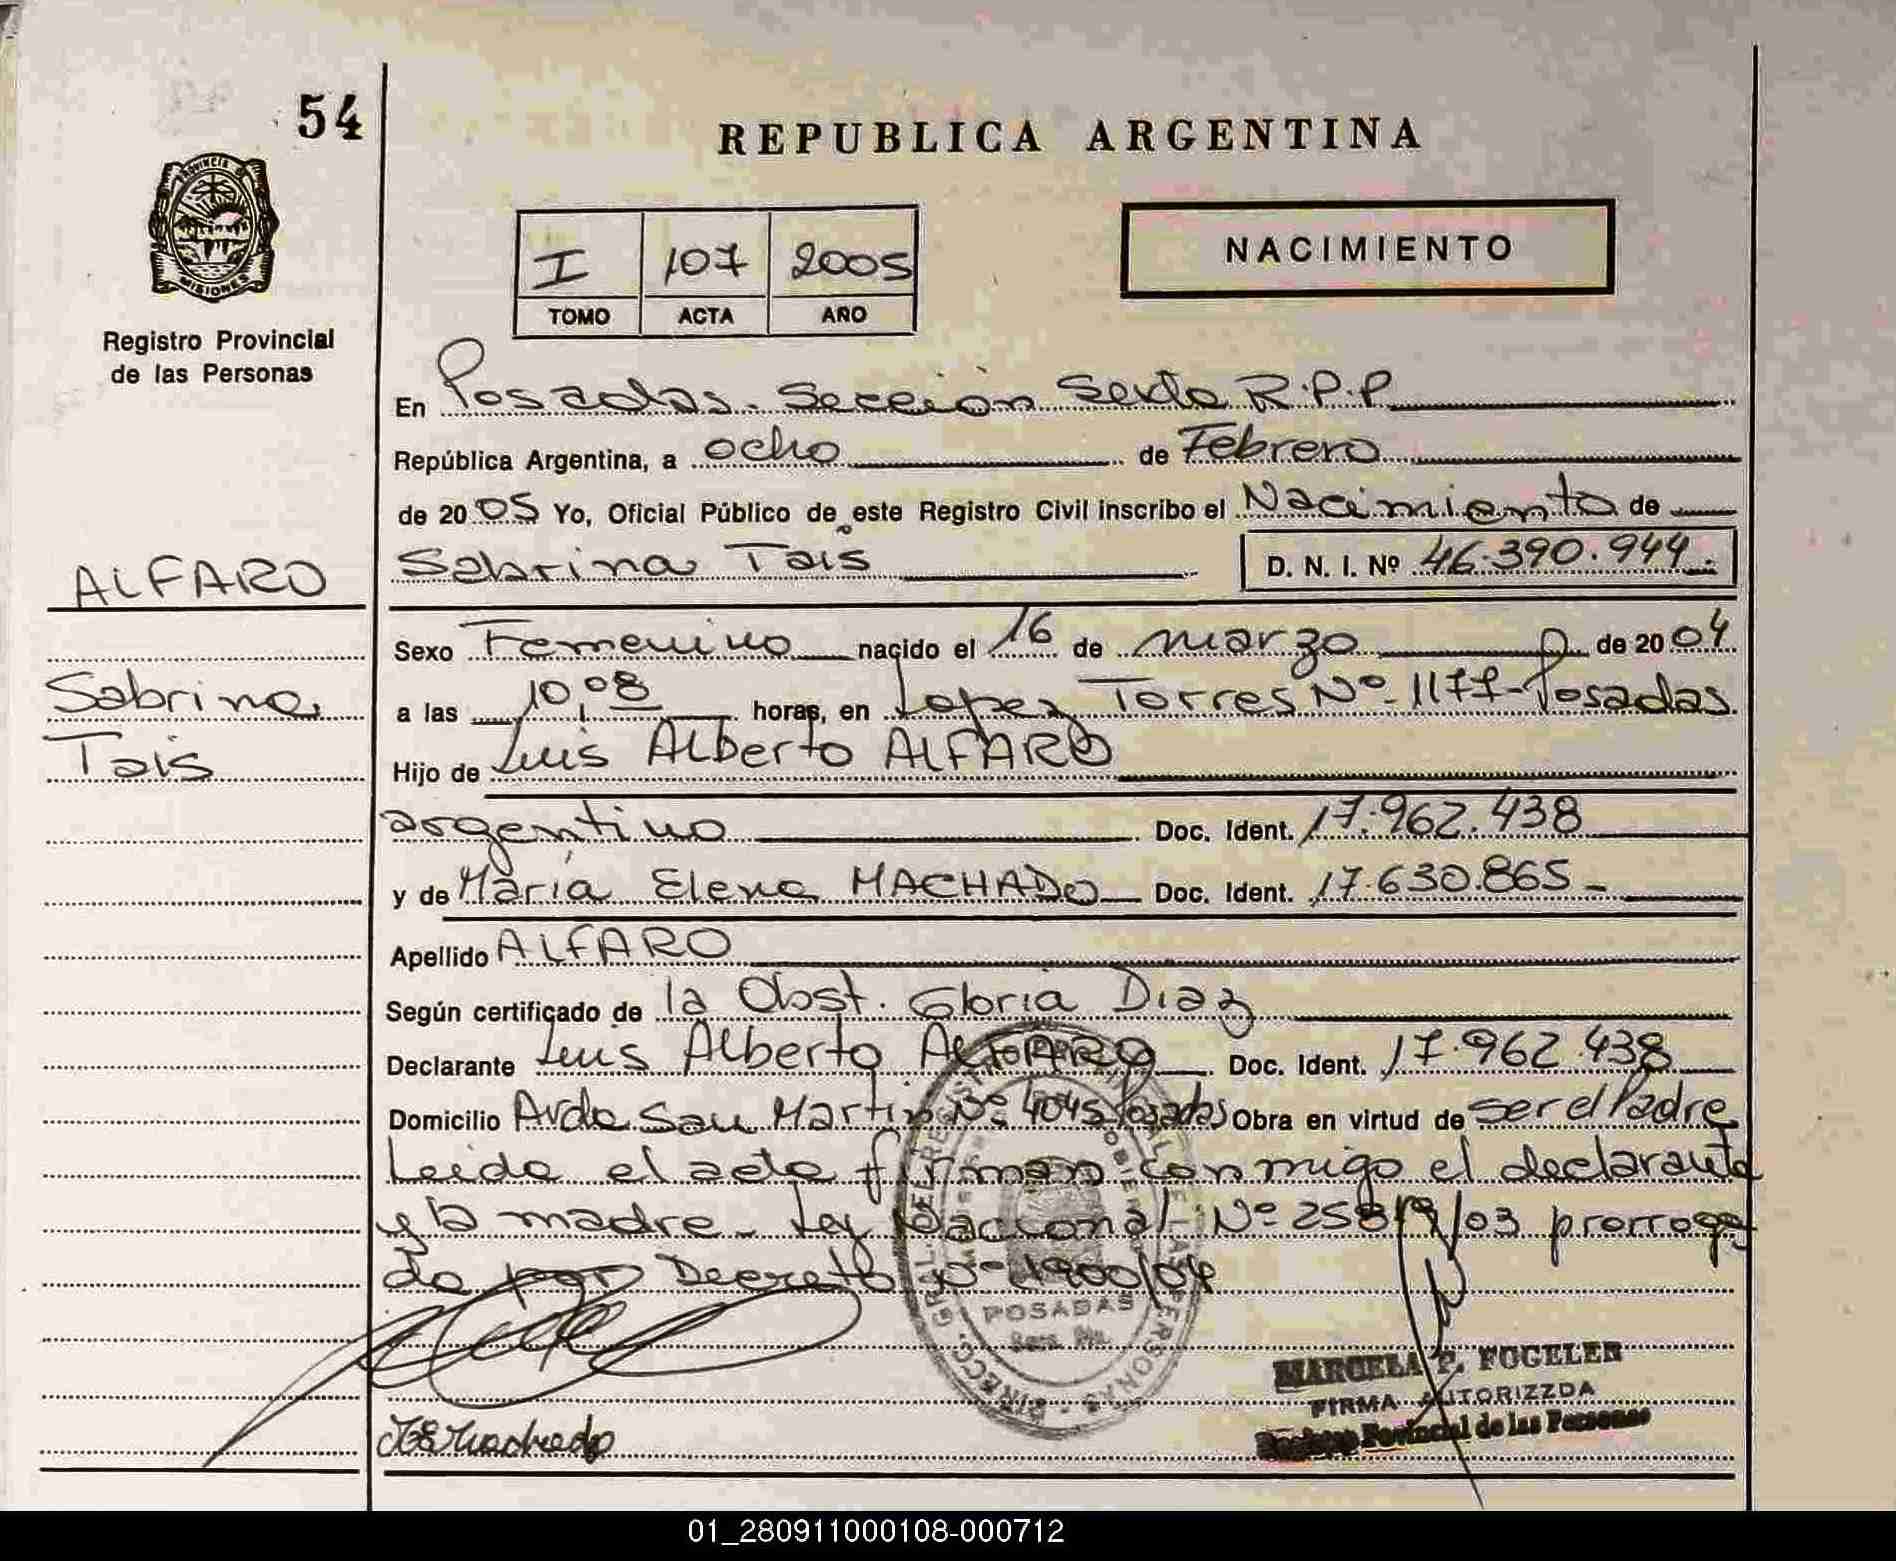 54
REPUBLICA ARGENTINA
PROVINCIA DE
MISIONES
Registro Provincial
de las Personas
I 107 2005
TOMO ACTA AÑO
NACIMIENTO
En Posadas. Sección Sexta R.P.P
República Argentina, a ocho de Febrero
de 2005 Yo, Oficial Público de este Registro Civil inscribo el Nacimiento de
Sabrina Tais D. N. I. Nº 46.390.944.
ALFARO
Sabrina
Tais
Sexo Femenino nacido el 16 de marzo de 2004
a las 10,08 horas, en Lopez Torres Nº 1177-Posadas
Hijo de Luis Alberto ALFARO
argentino Doc. Ident. 17.962.438
y de María Elena MACHADO Doc. Ident. 17.630.865-
Apellido ALFARO
Según certificado de la Obst. Gloria Diaz
Declarante Luis Alberto ALFARO Doc. Ident. 17.962.438
Domicilio Avda San Martin Nº 4045 Posadas Obra en virtud de ser el Padre
Leida el acta firman conmigo el declarante
y la madre - Ley Nacional Nº 25819/03 prorroga
da por Decreto Nº 1900/04
POSADAS
MARCELA P. FOGELER
FIRMA AUTORIZZDA
Registro Provincial de las Personas
01_280911000108-000712